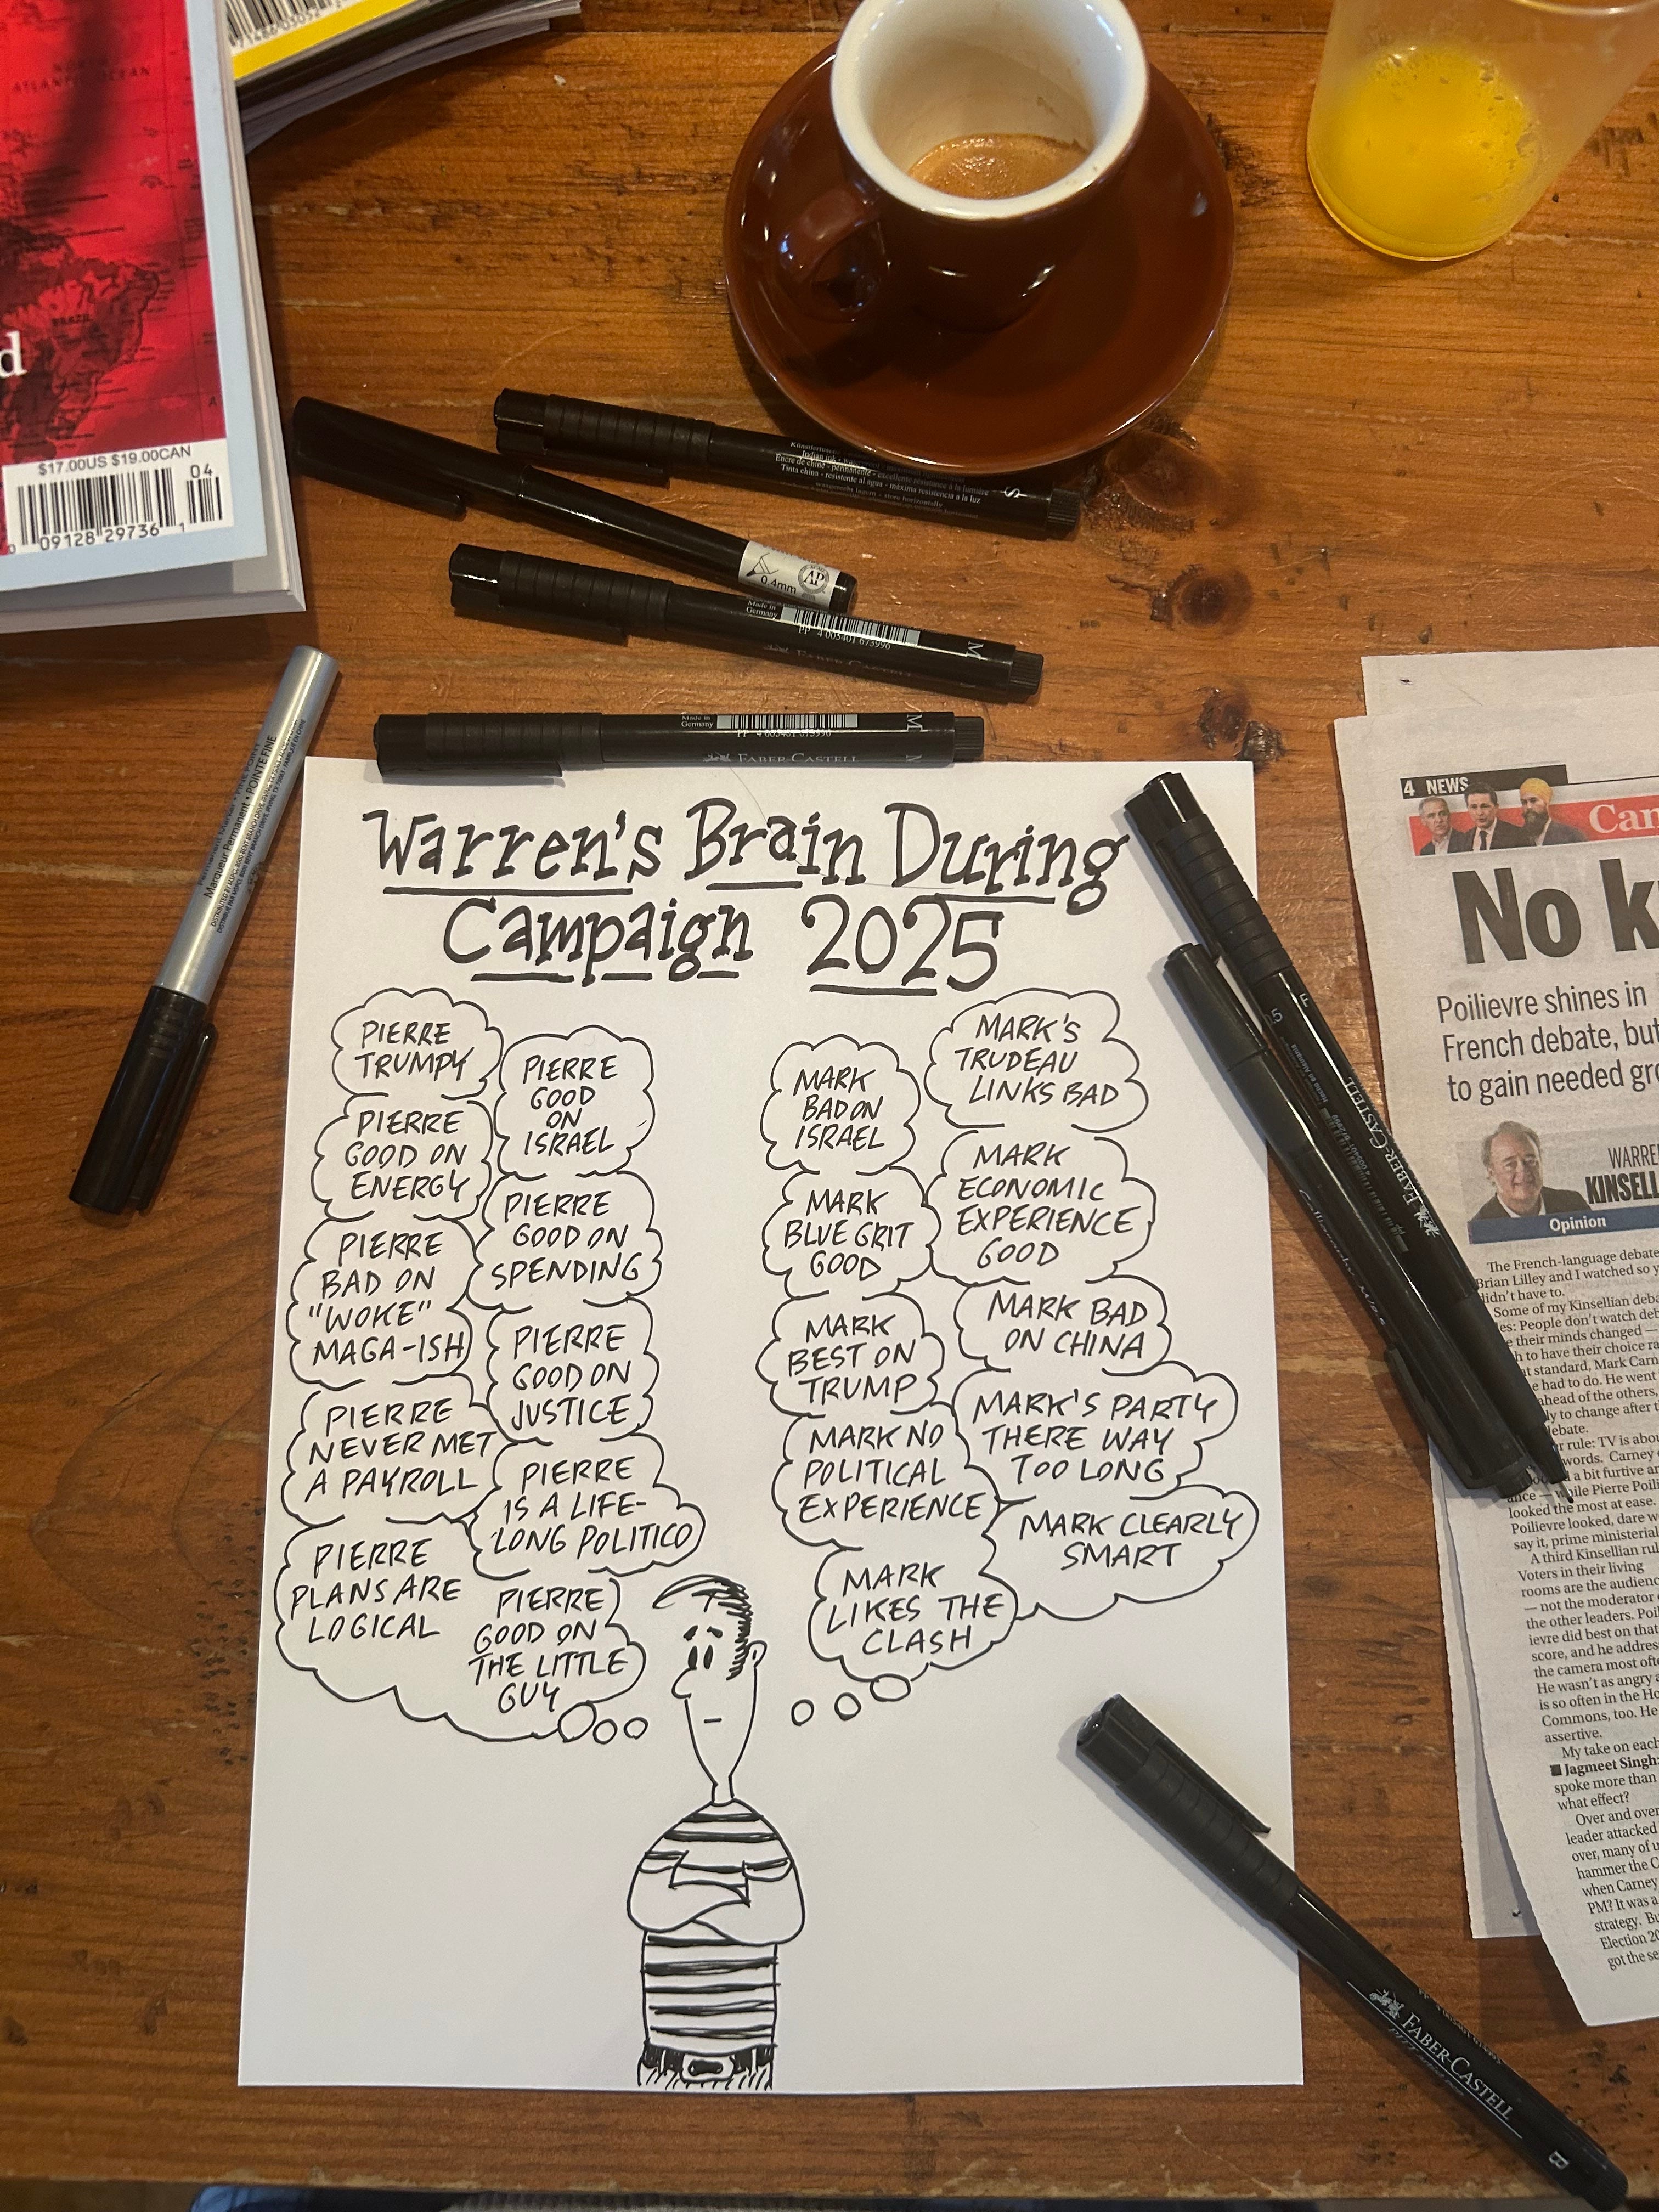 $17.00US $19.00CAN
04
09128 29736
Warren's Brain During
Campaign 2025
PIERRE
TRUMPY
PIERRE
GOOD ON
ENERGY
PIERRE
BAD ON
"WOKE"
MAGA-ISH
PIERRE
NEVER MET
A PAYROLL
PIERRE
PLANS ARE
LOGICAL
PIERRE
GOOD
ON
ISRAEL
PIERRE
GOOD ON
SPENDING
PIERRE
GOOD ON
JUSTICE
PIERRE
IS A LIFE-
LONG POLITICO
PIERRE
GOOD ON
THE LITTLE
GUY
MARK
BAD ON
ISRAEL
MARK
BLUE GRIT
GOOD
MARK
BEST ON
TRUMP
MARK NO
POLITICAL
EXPERIENCE
MARK
LIKES THE
CLASH
MARK'S
TRUDEAU
LINKS BAD
MARK
ECONOMIC
EXPERIENCE
GOOD
MARK BAD
ON CHINA
MARK'S PARTY
THERE WAY
TOO LONG
MARK CLEARLY
SMART
Tinta china - resistente al agua - máxima resistencia a la luz
S
0.4mm
AP
Made in
Germany
PP 4 005401 673996
M
FABER-CASTELL
Made in
Germany
M
FABER-CASTELL
Marqueur Permanent • POINTE FINE
F
FABER-CASTELL
FABER-CASTELL
B
4 NEWS
Can
No k
Poilievre shines in
French debate, but
to gain needed gro
WARRE
KINSELL
Opinion
The French-language debate
Brian Lilley and I watched so y
didn't have to.
Some of my Kinsellian deba
es: People don't watch deb
e their minds changed —
h to have their choice ra
t standard, Mark Carn
e had to do. He went
ahead of the others,
ly to change after t
ebate.
r rule: TV is abou
words. Carney
d a bit furtive an
ance — while Pierre Poili
looked the most at ease.
Poilievre looked, dare w
say it, prime ministerial
A third Kinsellian rul
Voters in their living
rooms are the audienc
— not the moderator
the other leaders. Poil
ievre did best on that
score, and he address
the camera most ofte
He wasn't as angry a
is so often in the Ho
Commons, too. He
assertive.
My take on each
Jagmeet Singh:
spoke more than
what effect?
Over and over
leader attacked
over, many of u
hammer the C
when Carney
PM? It was a
strategy. Bu
Election 20
got the se